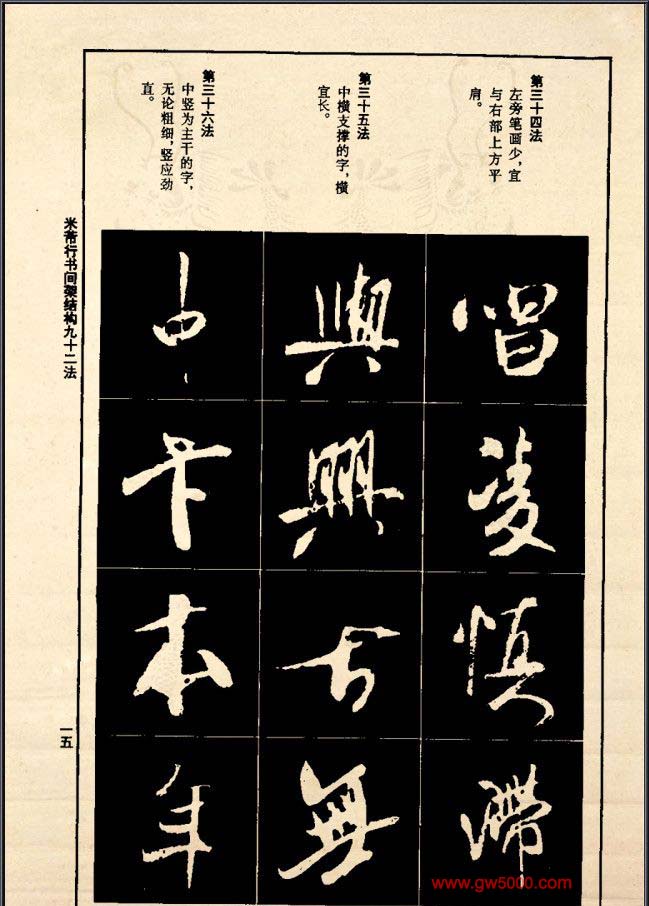 第三十四法
左旁笔画少，宜
与右部上方平
肩。
唱
凌
慎
滞
第三十五法
中横支撑的字，横
宜长。
與
興
無
第三十六法
中竖为主干的字，
无论粗细，竖应劲
直。
中
本
年
米芾行书间架结构九十二法
一五
www.gw5000.com